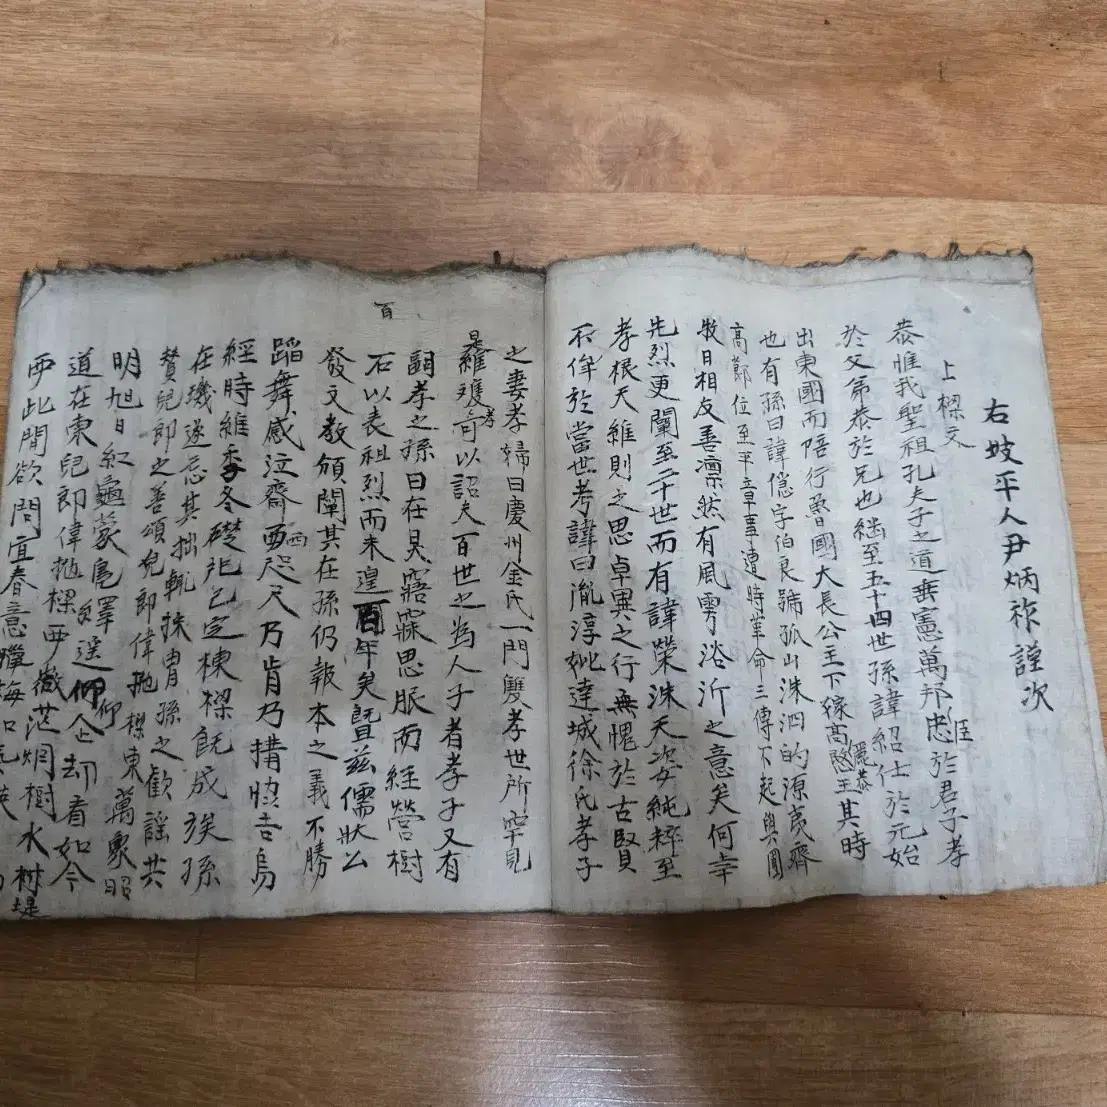 右坡平人尹炳 謹次
上樑文
恭惟我聖祖孔夫子之道垂憲萬邦忠於君子孝
臣
於父弟恭於兄也継至五十四世孫諱紹仕於元始
出東國而陪行魯國大長公主下嫁高 王其時
恭
也有孫曰諱隱字伯良號孤山洙泗的源 齊
高 位至平章事遭時革命三傳不起與圃
牧日相友善凛然有風雩浴沂之意矣何幸
先烈更闡至二十世而有諱榮洙天姿純粹至
孝根天維則之思卓異之行無愧於古賢
不侔於當世考諱曰胤淳妣達城徐氏孝子
之妻孝婦曰慶州金氏一門雙孝世所罕見
是維 可以詔夫百世之為人子者孝子又有
孝
嗣孝之孫曰在昊寤寐思服而經營樹
石以表祖烈而未遑 年矣曁茲儒狀公
百
發文教頒闡其在孫仍報本之義不勝
蹈舞感泣齋 咫尺乃肯乃搆 告烏
西
經時維季冬礎 已定棟樑旣成 孫
在璣遂忘其拙輒 胄孫之歡謠共
賛兒郎之善頌兒郎偉抛樑東萬象昭
明旭日紅龜蒙 遥仰 却看如今
仰
道在東兒郎偉抛樑西 烟樹水
樹堤
西此間欲問宜春意